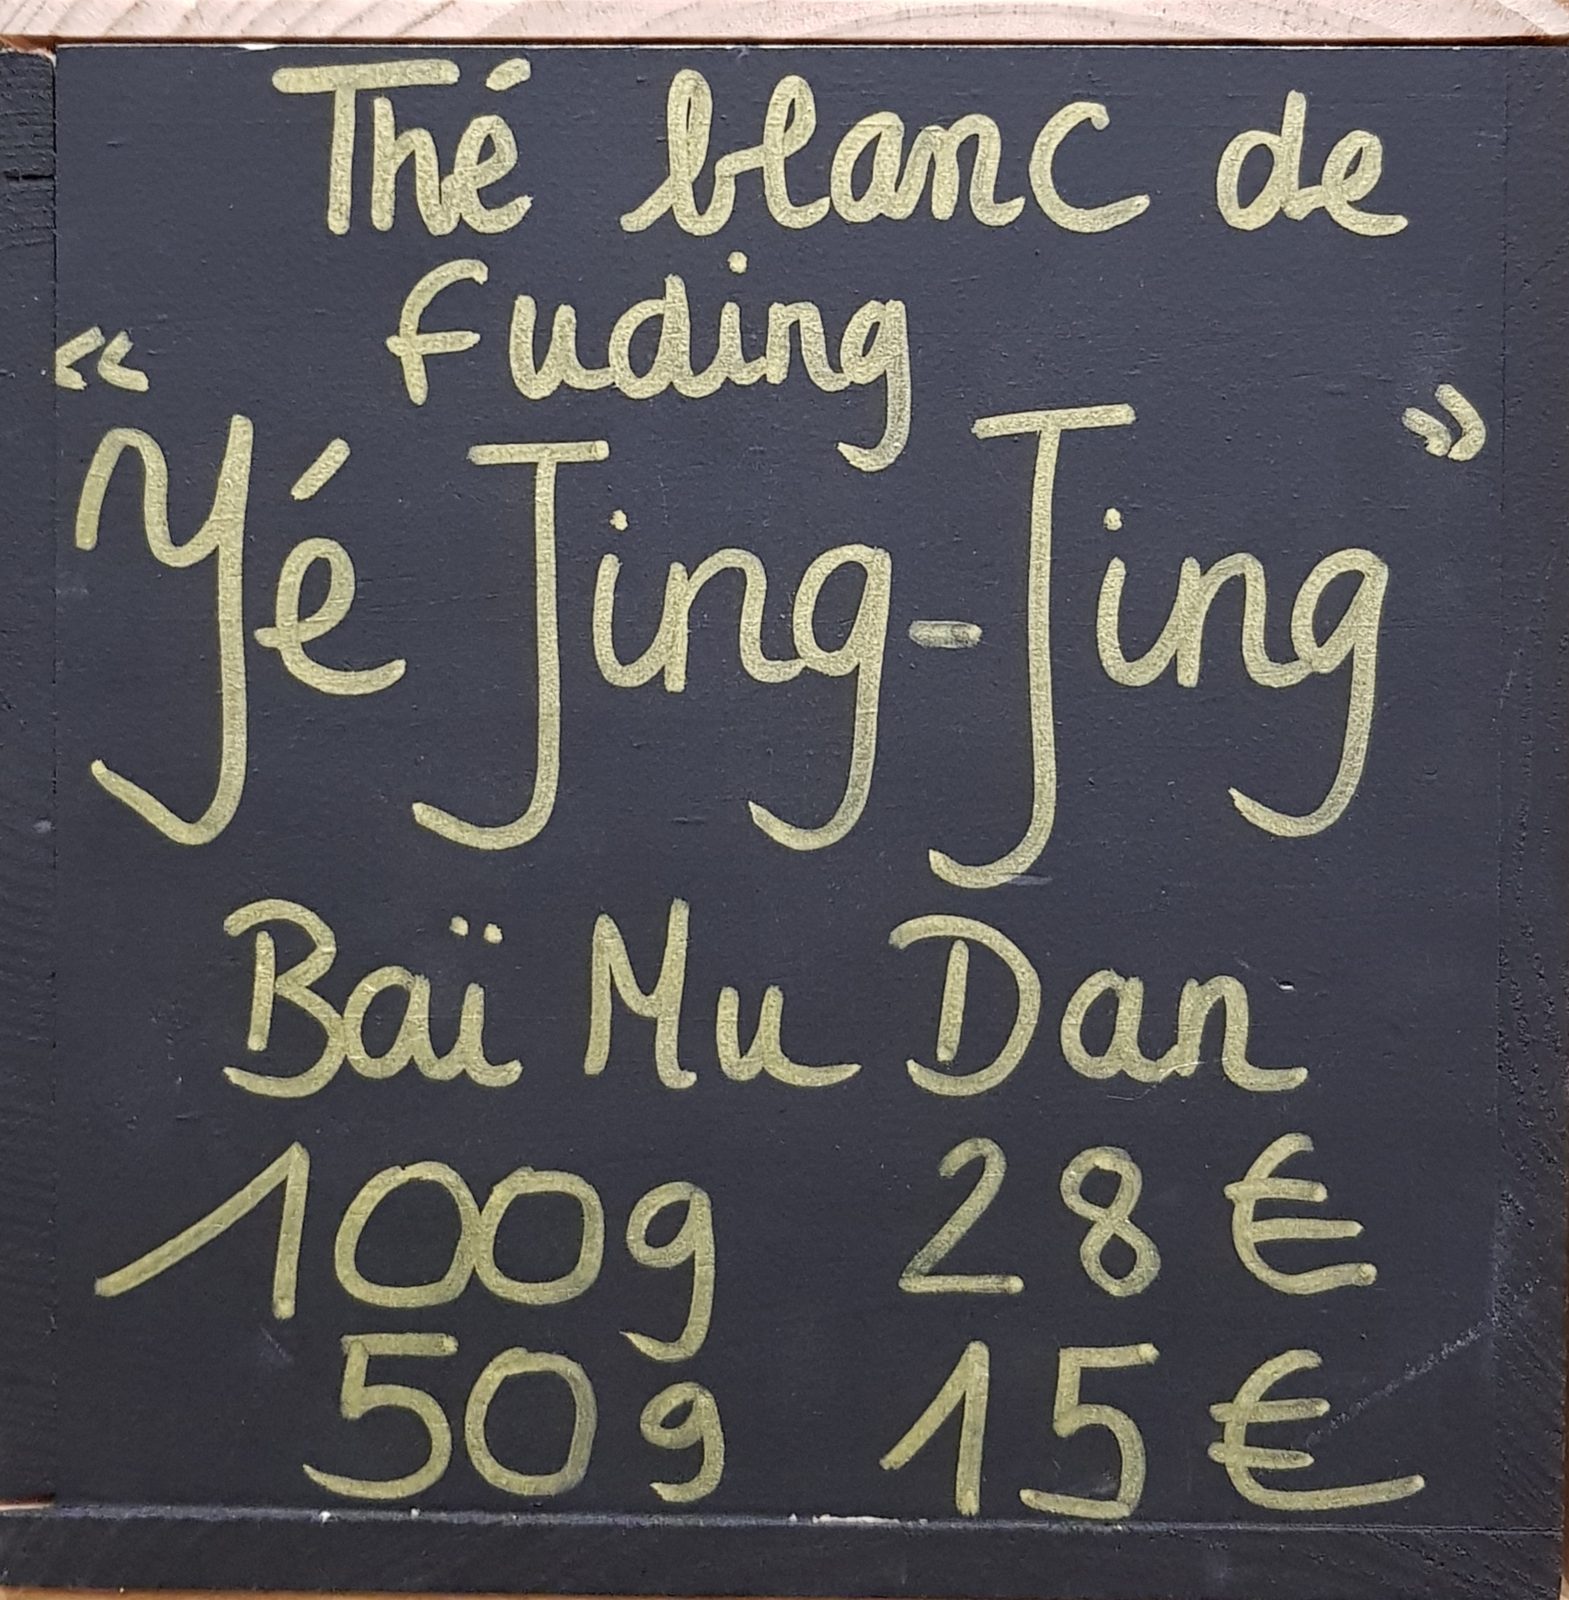 Thé blanc de
Fuding
"Yé Jing-Jing"
Baï Mu Dan
100g 28€
50g 15€